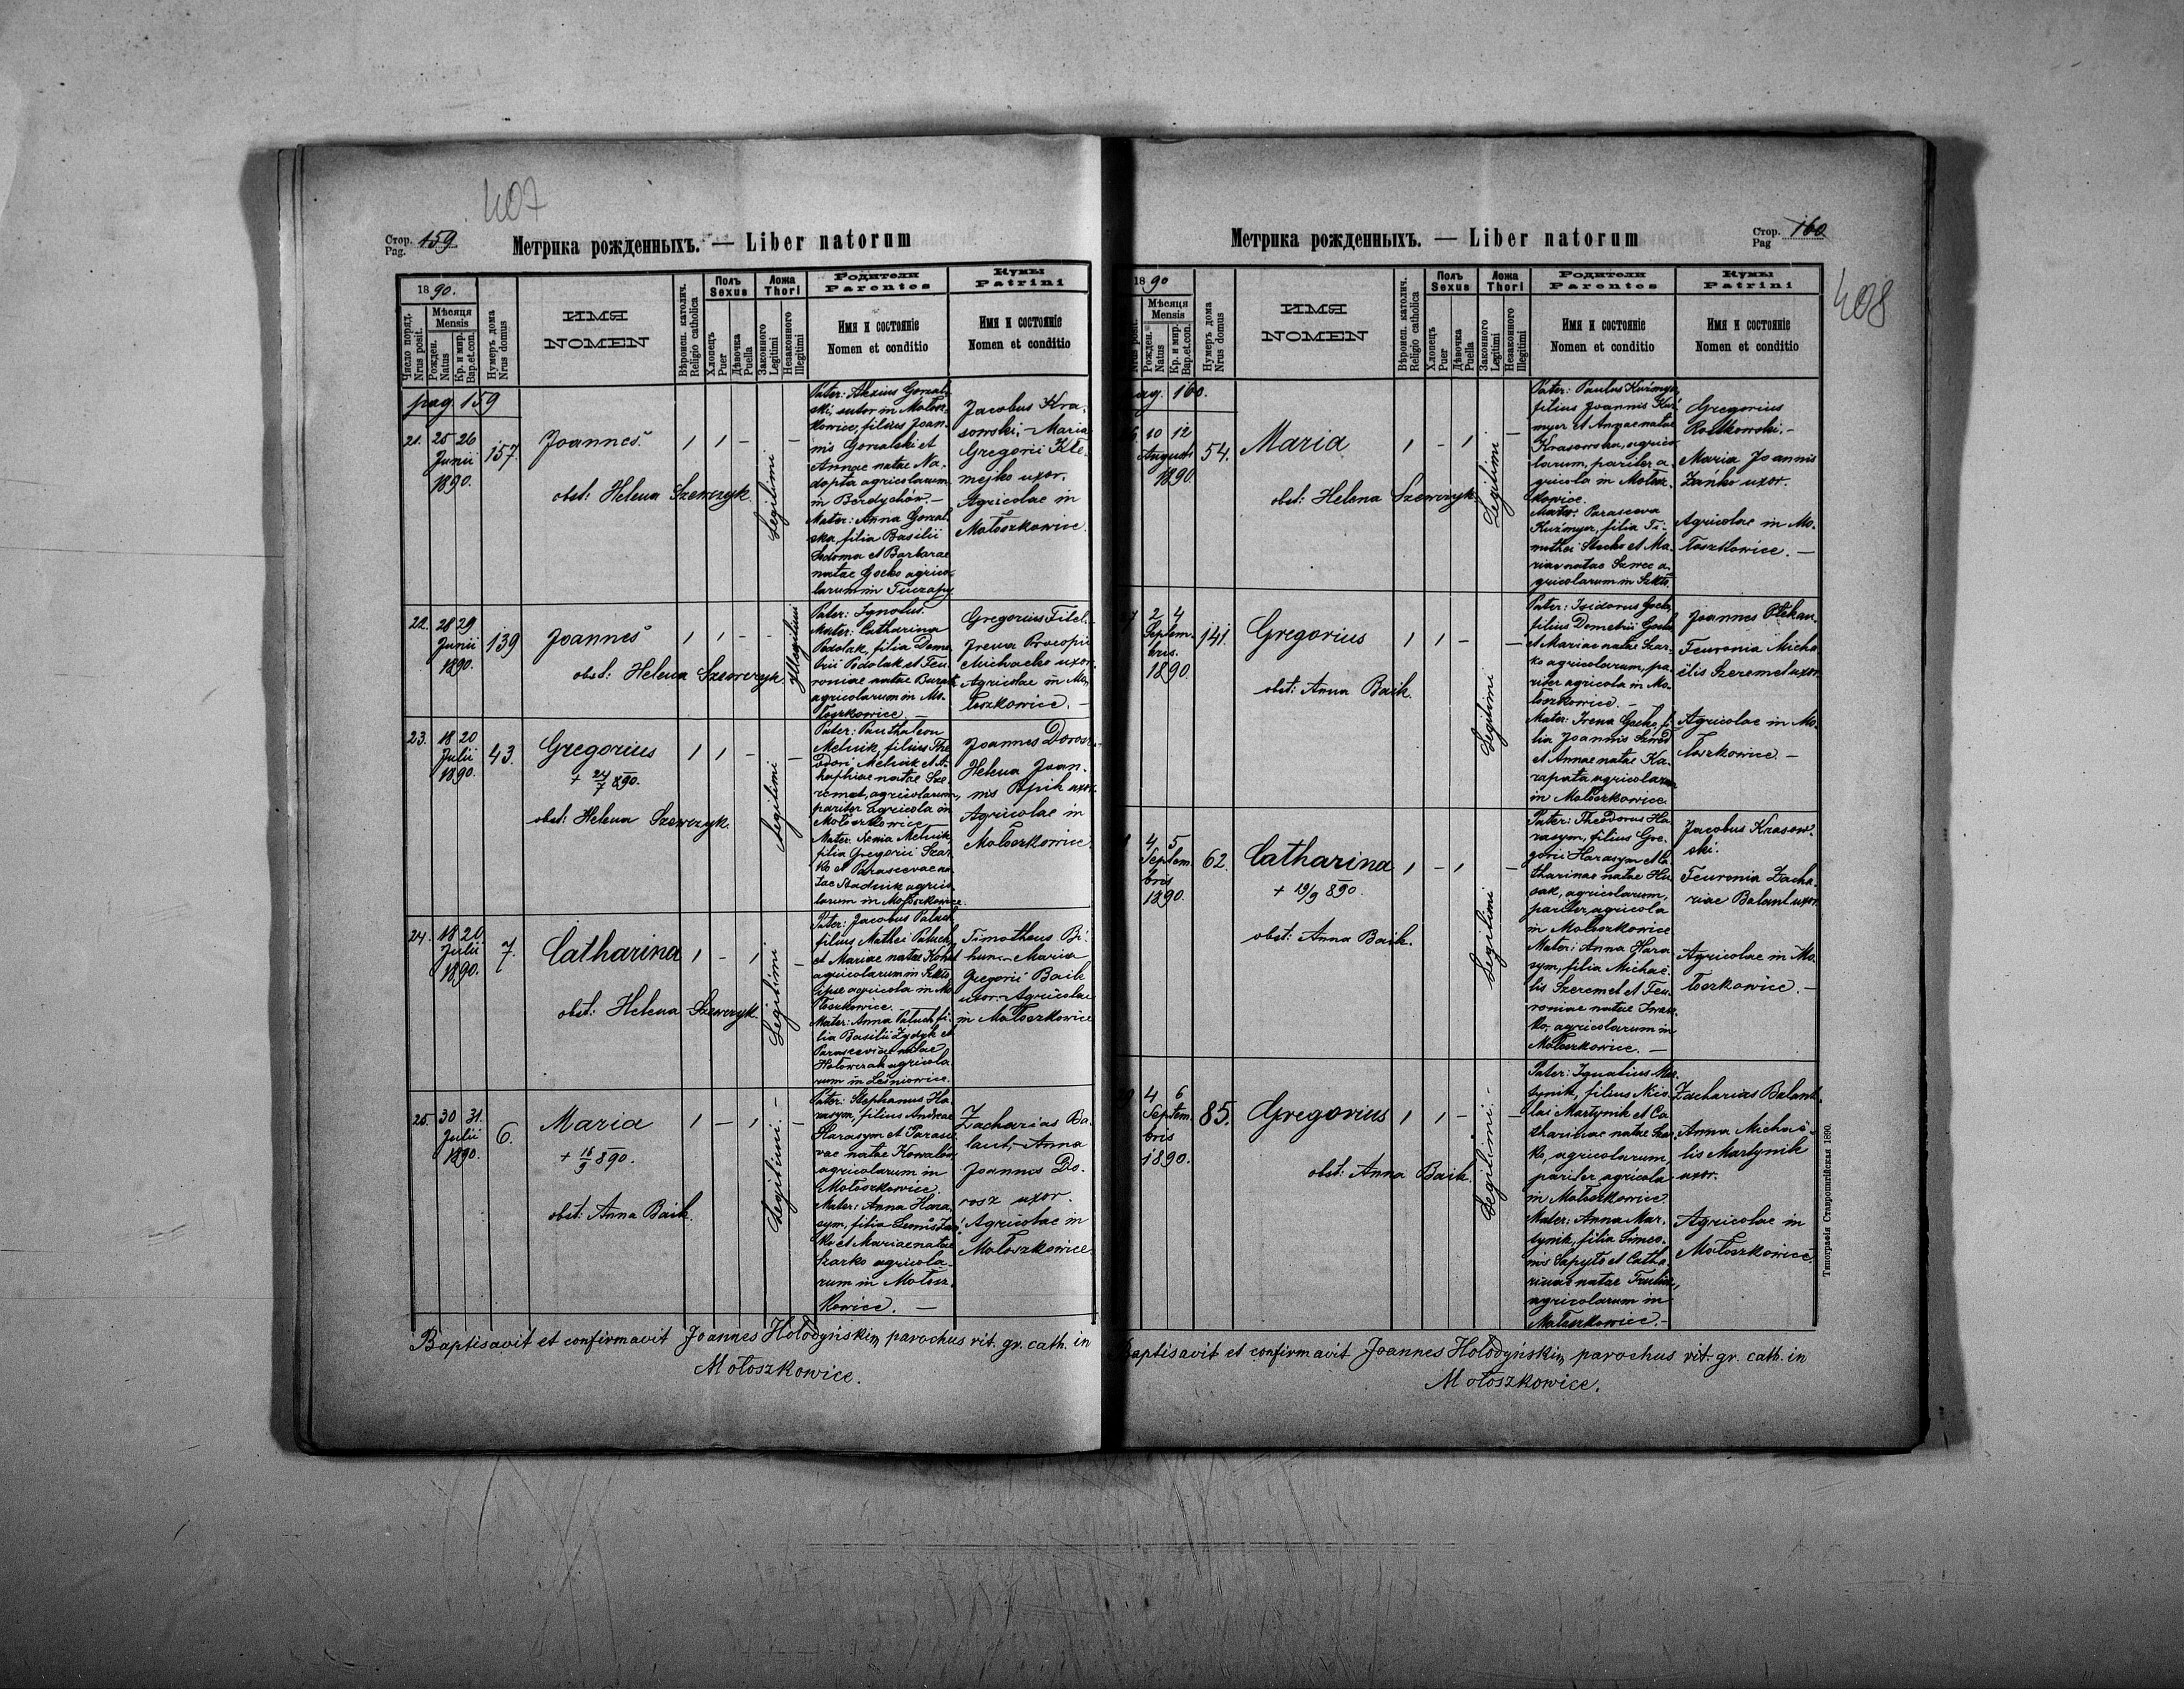 407
Стор.
Pag. 159.
Метрика рожденныхъ. — Liber natorum
1890.
Число поряд.
Nrus posit.
Мѣсяця
Mensis
Рожден.
Natus
Кр. и мир.
Bap.et.con.
Нумеръ дома
Nrus domus
ИМЯ
NOMEN
Вѣроисп. католич.
Religio catholica
Полъ
Sexus
Хлопецъ
Puer
Дѣвочка
Puella
Ложа
Thori
Законного
Legitimi
Незаконного
Illegitimi
Родители
Parentes
Имя и состоянiе
Nomen et conditio
Кумы
Patrini
Имя и состоянiе
Nomen et conditio
pag. 159
21. 25 26
Junii
1890.
157.
Joannes
obst: Helena Szewczyk
Legitimi
Pater: Alexius Gorzal-
ski, sutor in Mołosz-
kowice, filius Joan-
nis Gorzalski et
Annae natae Na-
dopta agricolarum
in Berdychów. —
Mater: Anna Gorzal-
ska, filia Basilii
Sodoma et Barbarae
natae Gocko agrico-
larum in Tuczapy
Jacobus Kra-
sowski, — Maria
Gregorii Kłe-
mejko uxor.
Agricolae in
Mołoszkowice.
22. 28 29
Junii
1890.
139
Joannes
obst: Helena Szewczyk
Illegitimi
Pater: Ignotus.
Mater: Catharina
Podolak, filia Deme-
trii Podolak et Feu-
roniae natae Burak
agricolarum in Mo-
łoszkowice. —
Gregorius Fitel. —
Irena Procopii
Michacko uxor.
Agricolae in Mo-
łoszkowice. —
23. 18 20
Julii
1890.
43.
Gregorius
+ 24/7 890.
obst: Helena Szewczyk.
Legitimi
Pater: Panthaleon
Melnik, filius The-
odori Melnik et A-
haphiae natae Sze-
remet, agricolarum,
pariter agricola in
Mołoszkowice
Mater: Xenia Melnik,
filia Gregorii Szar-
ko et Parascevae na-
tae Stadnik agrico-
larum in Mołoszkowice.
Joannes Dorosz. —
Helena Joan-
nis Opih uxor.
Agricolae in
Mołoszkowice
24. 18 20
Julii
1890.
7.
Catharina
obst: Helena Szewczyk.
Legitimi
Pater: Jacobus Paluch,
filius Mathei Paluch
et Mariae natae Kohut
agricolarum in Szkło
ipse agricola in Mo-
łoszkowice.
Mater: Anna Paluch fi-
lia Basilii Zydyk et
Parasceviae natae
Hołowczak agricola-
rum in Leśniowice.
Timotheus Bi-
hun. — Maria
Gregorii Baik
uxor. — Agricolae
in Mołoszkowice
25. 30 31.
Julii
1890.
6.
Maria
+ 16/9 890.
obst: Anna Baik.
Legitimi. —
Pater: Stephanus Ha-
rasym, filius Andreae
Harasym et Parasce-
vae natae Kowalów
agricolarum in
Mołoszkowice.
Mater: Anna Hara-
sym, filia
et Mariae natae
Szarko agricola-
rum in Mołosz-
kowice. —
Zacharias Ba-
lant, — Anna
Joannis Do-
rosz uxor.
Agricolae in
Mołoszkowice
Baptisavit et confirmavit Joannes Hołodyński, parochus rit. gr. cath. in
Mołoszkowice.
408
Стор.
Pag 160
Метрика рожденныхъ. — Liber natorum
1890
Nrus posit.
Мѣсяця
Mensis
Рожден.
Natus
Кр. и мир.
Bap.et.con.
Нумеръ дома
Nrus domus
ИМЯ
NOMEN
Вѣроисп. католич.
Religio catholica
Полъ
Sexus
Хлопецъ
Puer
Дѣвочка
Puella
Ложа
Thori
Законного
Legitimi
Незаконного
Illegitimi
Родители
Parentes
Имя и состоянiе
Nomen et conditio
Кумы
Patrini
Имя и состоянiе
Nomen et conditio
pag. 160.
10 12
Augusti
1890
54.
Maria
obst: Helena Szewczyk
Legitimi
Pater: Paulus Kuźmyer,
filius Joannis Kuź-
myer et Annae natae
Krasowska, agrico-
larum, pariter a-
gricola in Mołosz-
kowice.
Mater: Parasceva
Kuźmyer, filia Ti-
mothei Stecko et Ma-
riae natae Szwec a-
gricolarum in Szkło.
Gregorius
Rostkowski. —
Maria Joannis
Zańko uxor.
Agricolae in Mo-
łoszkowice. —
2 4
Septem-
bris.
1890.
141.
Gregorius
obst: Anna Baik.
Legitimi
Pater: Isidorus Gocko,
filius Demetrii Gocko
et Mariae natae Szar-
ko agricolarum, pa-
riter agricola in Mo-
łoszkowice. —
Mater: Irena Gocko, fi-
lia Joannis Szwed
et Annae natae Ka-
rapata agricolarum
in Mołoszkowice
Joannes
Feuronia Micha-
ëlis Szeremet uxor
Agricolae in Mo-
łoszkowice. —
4 5
Septem-
bris
1890.
62.
Catharina
+ 19/9 890.
obst: Anna Baik.
Legitimi
Pater: Theodorus Ha-
rasym, filius Gre-
gorii Harasym et Ca-
tharinae natae Hu-
sak, agricolarum,
pariter agricola
in Mołoszkowice
Mater: Anna Hara-
sym, filia Michaë-
lis Szeremet et Feu-
roniae natae Iwasz-
ko, agricolarum in
Mołoszkowice. —
Jacobus Krasow-
ski.
Feuronia Zacha-
riae Balant uxor
Agricolae in Mo-
łoszkowice. —
4 6
Septem-
bris
1890.
85.
Gregorius
obst: Anna Baik.
Legitimi. —
Pater: Ignatius Mar-
tynik, filius Nico-
lai Martynik et Ca-
tharinae natae Szar-
ko, agricolarum,
pariter agricola
in Mołoszkowice
Mater: Anna Mar-
tynik, filia Simeo-
nis Sapyło et Catha-
rinae natae
agricolarum in
Mołoszkowice. —
Zacharias Balant.
Anna Michaë-
lis Martynik
uxor.
Agricolae in
Mołoszkowice.
Baptisavit et confirmavit Joannes Hołodyński, parochus rit. gr. cath. in
Mołoszkowice.
Типографія Ставропигійская 1890.